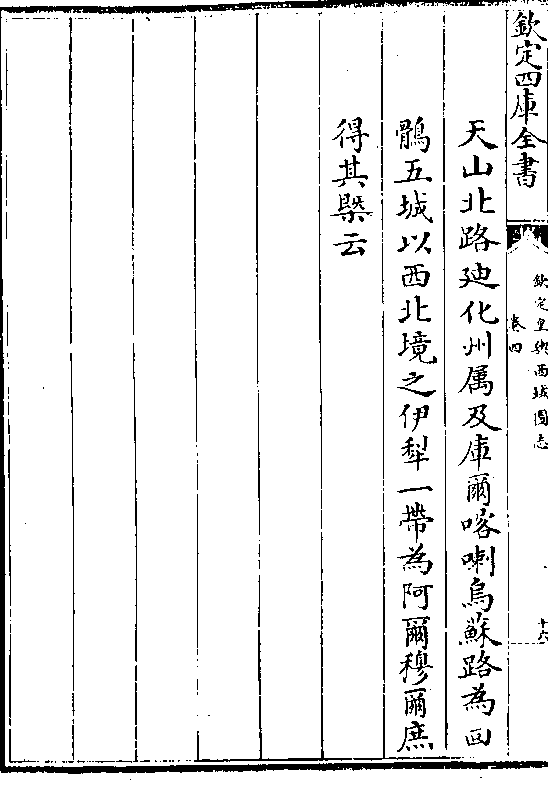 欽定四庫全書
欽定皇輿西域圖志
卷四
十六
天山北路廸化州属及庫爾喀喇烏蘇路為回
鶻五城以西北境之伊犂一帶為阿爾穆爾庶
得其槩云